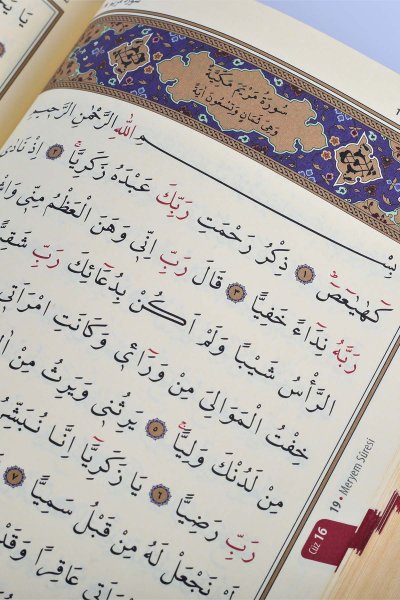 سُورَةُ مَرْيَمَ مَكِّيَّةٌ
وَهِيَ ثَمَانٍ وَتِسْعُونَ اٰيَةً
بِسْمِ اللّٰهِ الرَّحْمٰنِ الرَّحِيمِ
كٓهٰيٰعٓصٓ ١ ذِكْرُ رَحْمَتِ رَبِّكَ عَبْدَهُ زَكَرِيَّا ٢ اِذْ
رَبَّهُ نِدَاءً خَفِيًّا ٣ قَالَ رَبِّ اِنِّى وَهَنَ الْعَظْمُ مِنِّى
الرَّأْسُ شَيْبًا وَلَمْ اَكُنْ بِدُعَائِكَ رَبِّ
خِفْتُ الْمَوَالِىَ مِنْ وَرَائِى وَكَانَتِ امْرَاَتِى
مِنْ لَدُنْكَ وَلِيًّا ٥ يَرِثُنِى وَيَرِثُ مِنْ
رَبِّ رَضِيًّا ٦ يَا زَكَرِيَّا اِنَّا
نَجْعَلْ لَهُ مِنْ قَبْلُ سَمِيًّا ٧
عَاقِرًا وَقَدْ
19 • Meryem Sûresi
Cüz 16